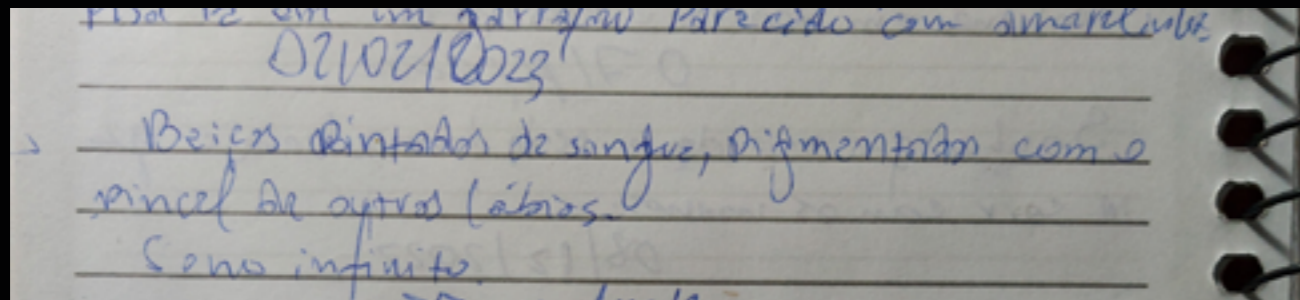 parecido com
02/02/2023
Beiços pintados de sangue, pigmentados com o
pincel de outros lábios.
Sono infinito